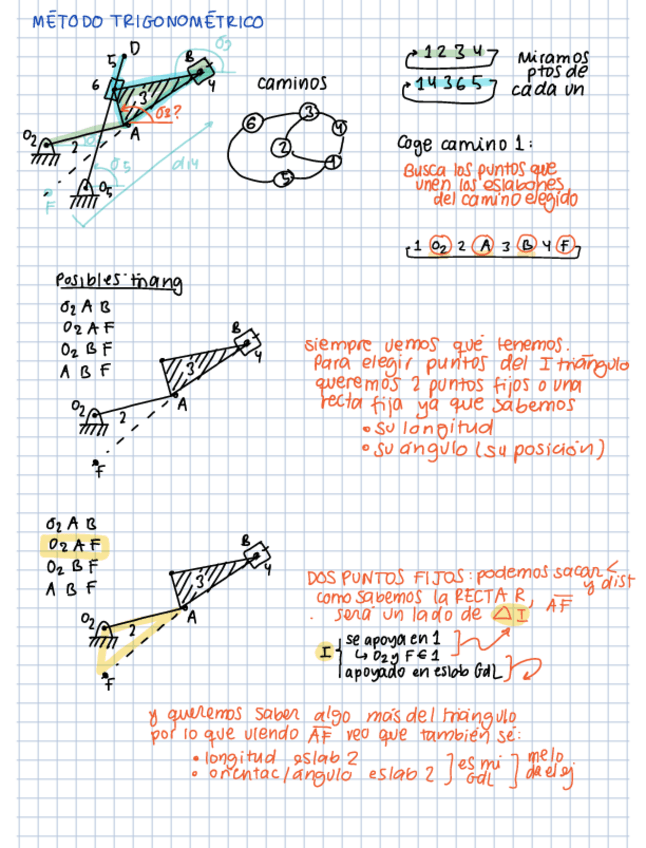 MÉTODO TRIGONOMÉTRICO
D
5
B
σ3
6
4
3
σ3?
O2
2
A
d14
σ5
F
O5
caminos
6
3
4
2
1
5
1 2 3 4
1 4 3 6 5
Miramos
ptos de
cada un
Coge camino 1:
Busca los puntos que
unen los eslabones
del camino elegido
1 O2 2 A 3 B 4 F
Posibles triang
O2 A B
O2 A F
O2 B F
A B F
B
4
3
O2
2
A
F
siempre vemos qué tenemos.
Para elegir puntos del I triángulo
queremos 2 puntos fijos o una
recta fija ya que sabemos
• su longitud
• su ángulo (su posición)
O2 A B
O2 A F
O2 B F
A B F
B
4
3
O2
2
A
F
DOS PUNTOS FIJOS: podemos sacar <
y dist
como sabemos la RECTA R, AF
será un lado de △ I
I
se apoya en 1
↳ O2 y F ∈ 1
apoyado en eslab GdL
y queremos saber algo más del triángulo
por lo que viendo AF veo que también sé:
• longitud eslab 2
• orientac/ángulo eslab 2
es mi
GdL
me lo
da el ej